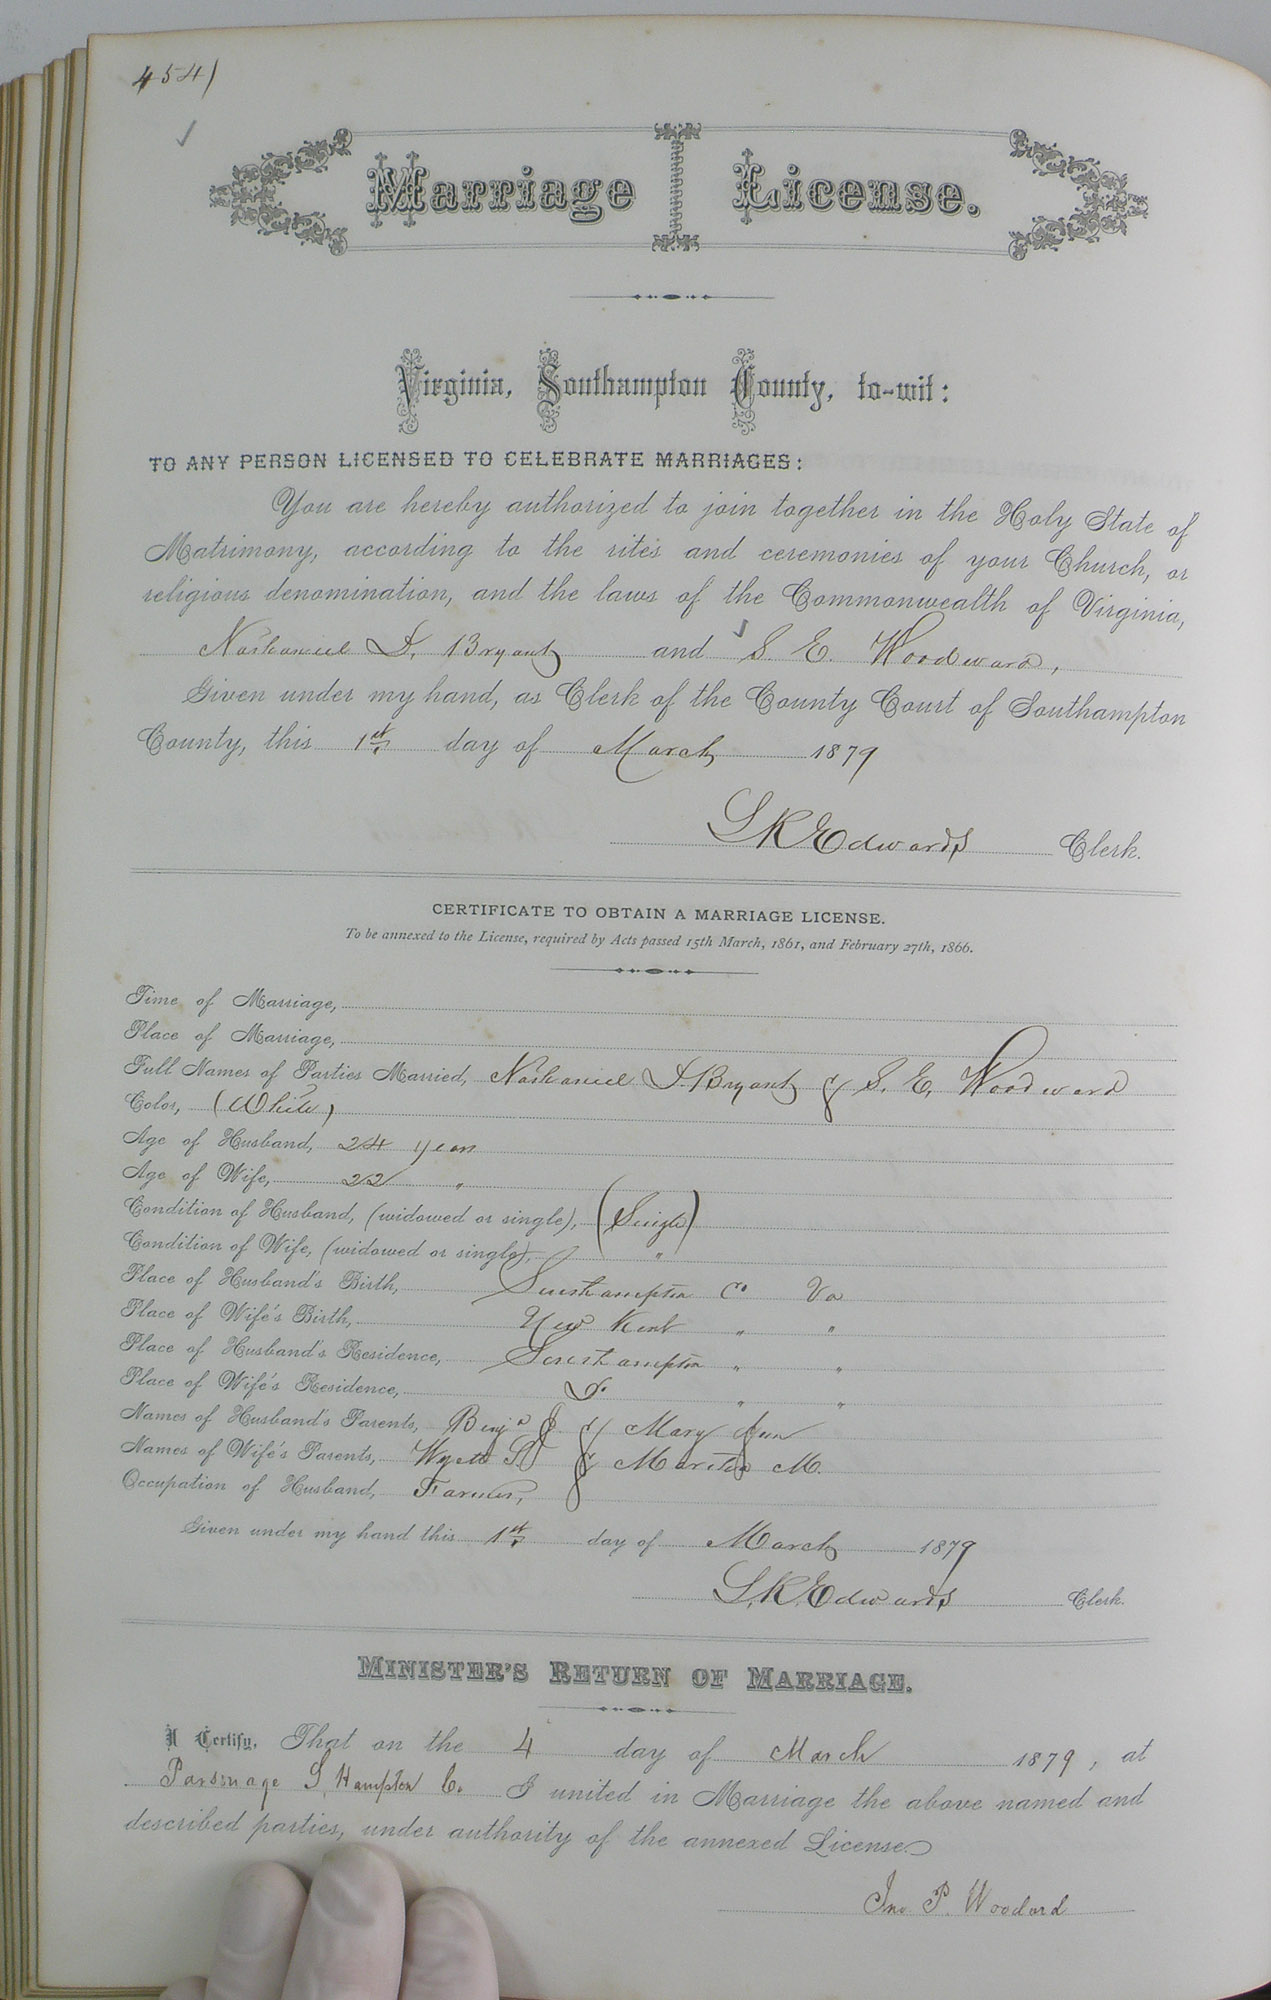 454)
Marriage License.
Virginia, Southampton County, to-wit:
TO ANY PERSON LICENSED TO CELEBRATE MARRIAGES:
You are hereby authorized to join together in the Holy State of
Matrimony, according to the rites and ceremonies of your Church, or
religious denomination, and the laws of the Commonwealth of Virginia,
Nathaniel D. Bryant and S. E. Woodward,
Given under my hand, as Clerk of the County Court of Southampton
County, this 1st day of March 1879
L K Edwards Clerk.
CERTIFICATE TO OBTAIN A MARRIAGE LICENSE.
To be annexed to the License, required by Acts passed 15th March, 1861, and February 27th, 1866.
Time of Marriage,
Place of Marriage,
Full Names of Parties Married, Nathaniel D. Bryant & S. E. Woodward
Color, (White)
Age of Husband, 24 years
Age of Wife, 22 "
Condition of Husband, (widowed or single), (Single)
Condition of Wife, (widowed or single), "
Place of Husband's Birth, Southampton Co Va
Place of Wife's Birth, New Kent " "
Place of Husband's Residence, Southampton " "
Place of Wife's Residence, Do " "
Names of Husband's Parents, Benja J. & Mary Ann
Names of Wife's Parents, Wyatt & M.
Occupation of Husband, Farmer,
Given under my hand this 1st day of March 1879
L. K. Edwards Clerk.
MINISTER'S RETURN OF MARRIAGE.
I Certify, That on the 4 day of March 1879, at
Parsonage S. Hampton Co. I united in Marriage the above named and
described parties, under authority of the annexed License
Jno P. Woodard